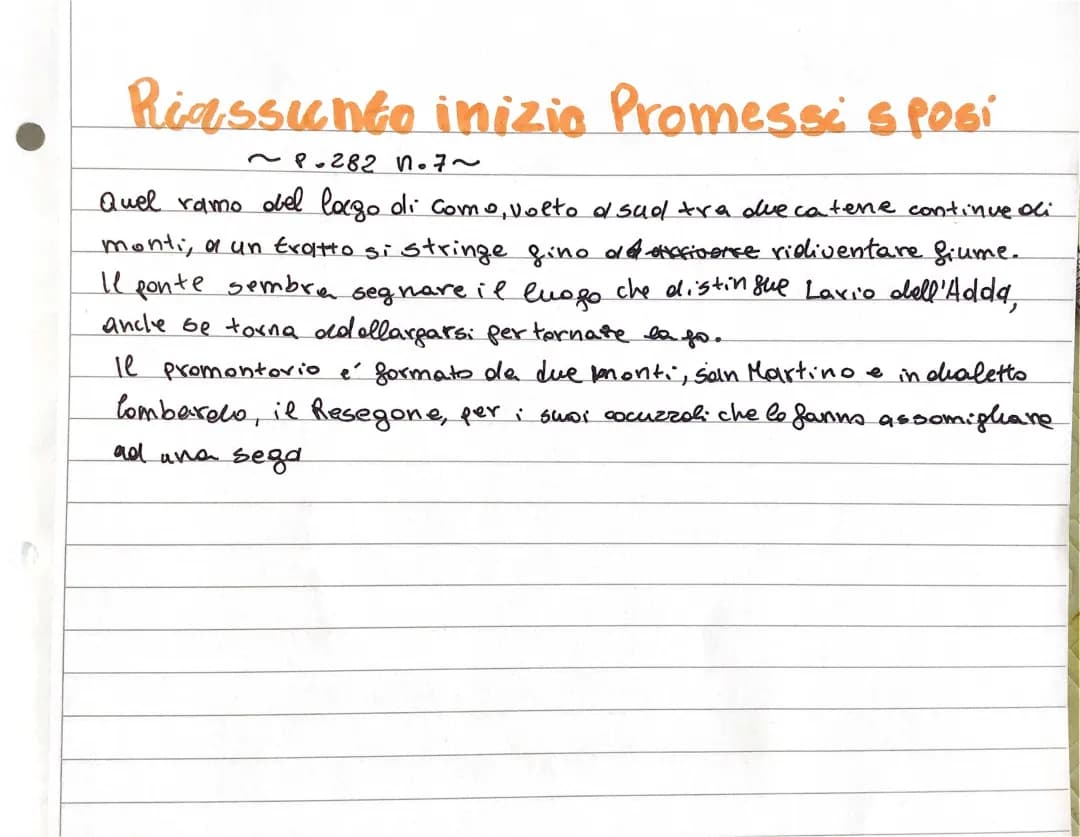 Riassunto inizio Promessi sposi
~ P.282 n.7 ~
Quel ramo del lago di Como, volto a sud tra due catene continue di
monti, a un tratto si stringe fino a ridiventare fiume.
Il ponte sembra segnare il luogo che distingue Lario dell'Adda,
anche se torna ad allargarsi per tornare lago.
Il promontorio e' formato da due monti, san Martino e in dialetto
lombardo, il Resegone, per i suoi cocuzzoli che lo fanno assomigliare
ad una sega